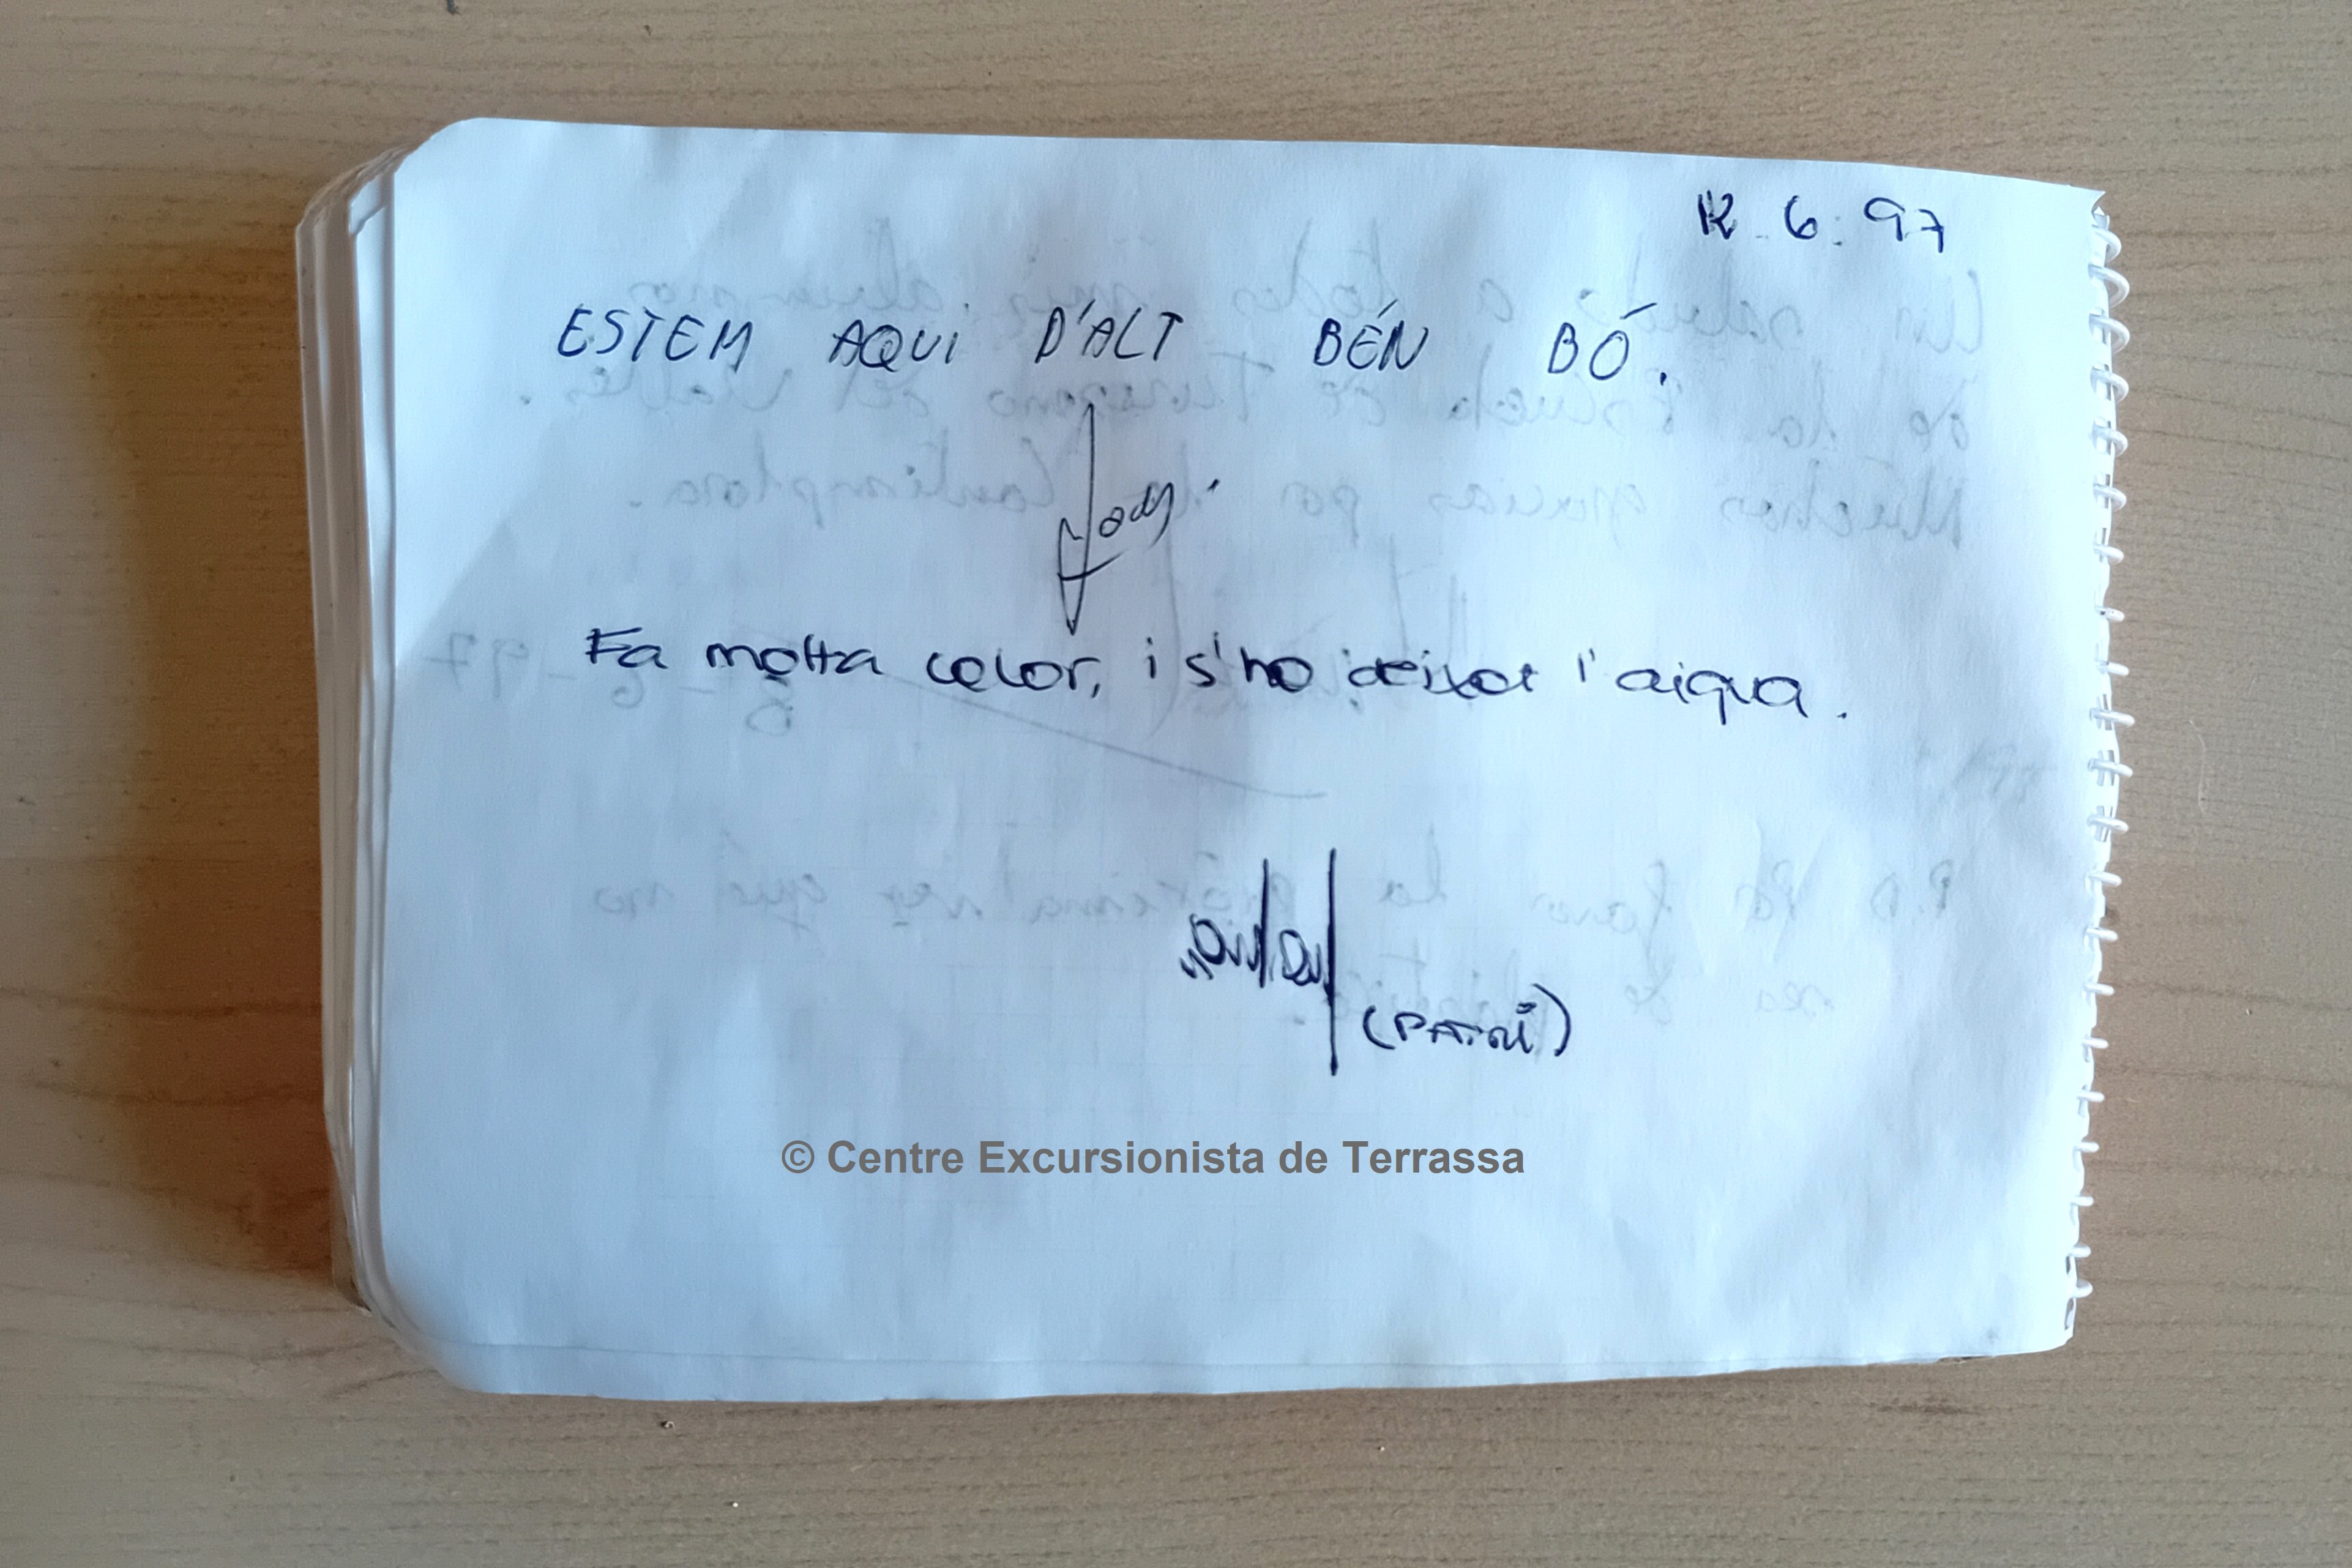 12.6.97
ESTEM AQUI D'ALT BÉN BÓ.
Jordi
Fa molta calor, i s'ha deixat l'aigua.
© Centre Excursionista de Terrassa